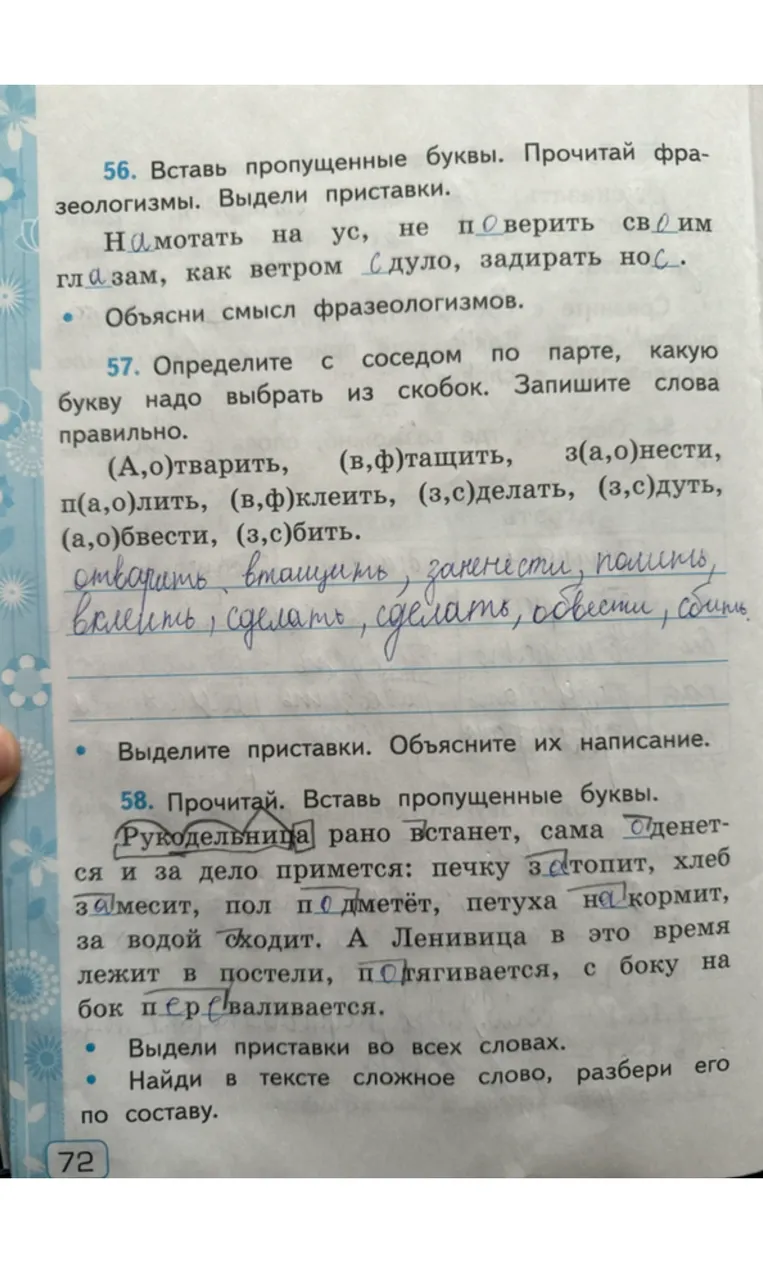 56. Вставь пропущенные буквы. Прочитай фра-
зеологизмы. Выдели приставки.
Намотать на ус, не поверить своим
глазам, как ветром сдуло, задирать нос.
• Объясни смысл фразеологизмов.
57. Определите с соседом по парте, какую
букву надо выбрать из скобок. Запишите слова
правильно.
(А,о)тварить, (в,ф)тащить, з(а,о)нести,
п(а,о)лить, (в,ф)клеить, (з,с)делать, (з,с)дуть,
(а,о)бвести, (з,с)бить.
отварить, втащить, занести, полить,
вклеить, сделать, сделать, обвести, сбить.
• Выделите приставки. Объясните их написание.
58. Прочитай. Вставь пропущенные буквы.
Рукодельница рано встанет, сама оденет-
ся и за дело примется: печку затопит, хлеб
замесит, пол подметёт, петуха накормит,
за водой сходит. А Ленивица в это время
лежит в постели, потягивается, с боку на
бок переваливается.
• Выдели приставки во всех словах.
• Найди в тексте сложное слово, разбери его
по составу.
72